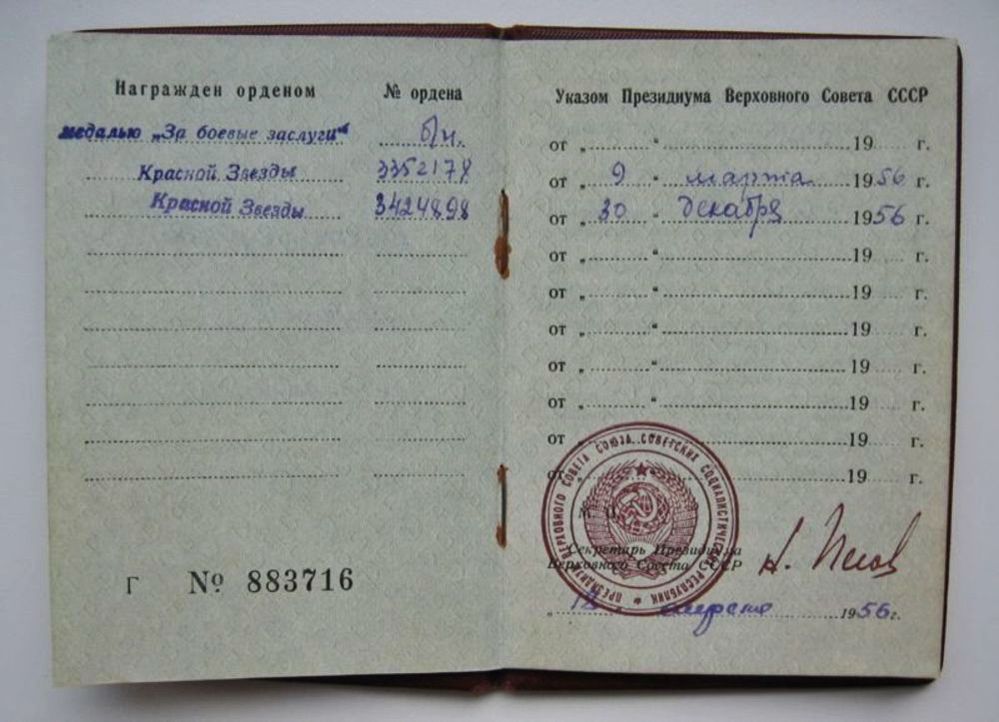 Награжден орденом № ордена
медалью „За боевые заслуги“ б/н.
Красной Звезды 3352178
Красной Звезды 3424898
Г № 883716
Указом Президиума Верховного Совета СССР
от „ “ 19 г.
от „ 9 “ марта 1956 г.
от „ 30 “ декабря 1956 г.
от „ “ 19 г.
от „ “ 19 г.
от „ “ 19 г.
от „ “ 19 г.
от „ “ 19 г.
от „ “ 19 г.
от „ “ 19 г.
ПРЕЗИДИУМ ВЕРХОВНОГО СОВЕТА СОЮЗА СОВЕТСКИХ СОЦИАЛИСТИЧЕСКИХ РЕСПУБЛИК
М. П.
Секретарь Президиума
Верховного Совета СССР
„ 18 “ 1956 г.